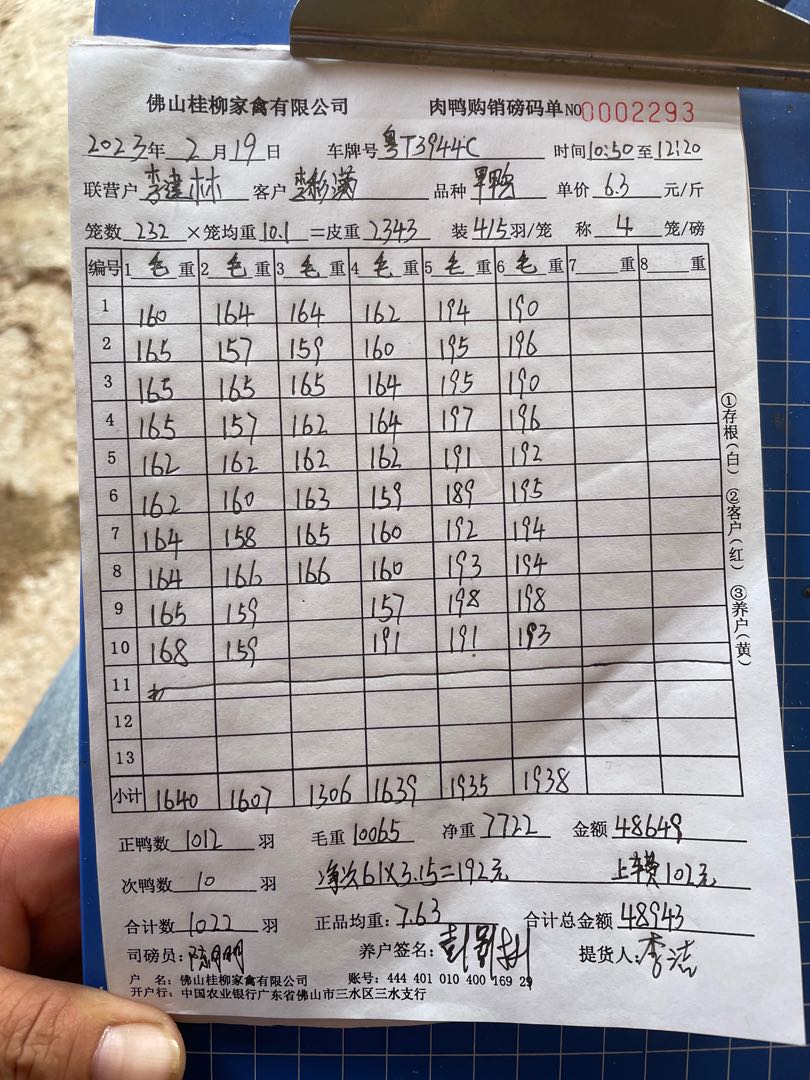 佛山桂柳家禽有限公司 肉鸭购销磅码单 NO 0002293
2023年 2 月 19 日 车牌号 粤T3944C 时间 10:50 至 12:20
联营户 李建林 客户 品种 单价 6.3 元/斤
笼数 232 ×笼均重 10.1 =皮重 2343 装 4/5 羽/笼 称 4 笼/磅
编号 1 毛 重 2 毛 重 3 毛 重 4 毛 重 5 毛 重 6 毛 重 7 重 8 重
1 160 164 164 162 194 190
2 165 157 159 160 195 196
3 165 165 165 164 195 190
4 165 157 162 164 197 196
5 162 162 162 162 191 192
6 162 160 163 159 189 195
7 164 158 165 160 192 194
8 164 166 166 160 193 194
9 165 159 157 198 198
10 168 159 191 191 193
11
12
13
小计 1640 1607 1306 1639 1935 1938
正鸭数 1012 羽 毛重 10065 净重 7722 金额 48649
次鸭数 10 羽 净次61×3.15=192元 上车费102元
合计数 1022 羽 正品均重: 7.63 合计总金额 48943
司磅员: 养户签名: 提货人:
户 名: 佛山桂柳家禽有限公司 账号: 444 401 010 400 169 29
开户行: 中国农业银行广东省佛山市三水区三水支行
①存根(白) ②客户(红) ③养户(黄)